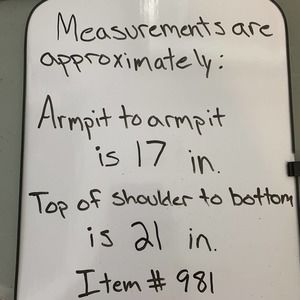 Measurements are
approximately:
Armpit to armpit
is 17 in.
Top of shoulder to bottom
is 21 in.
Item # 981